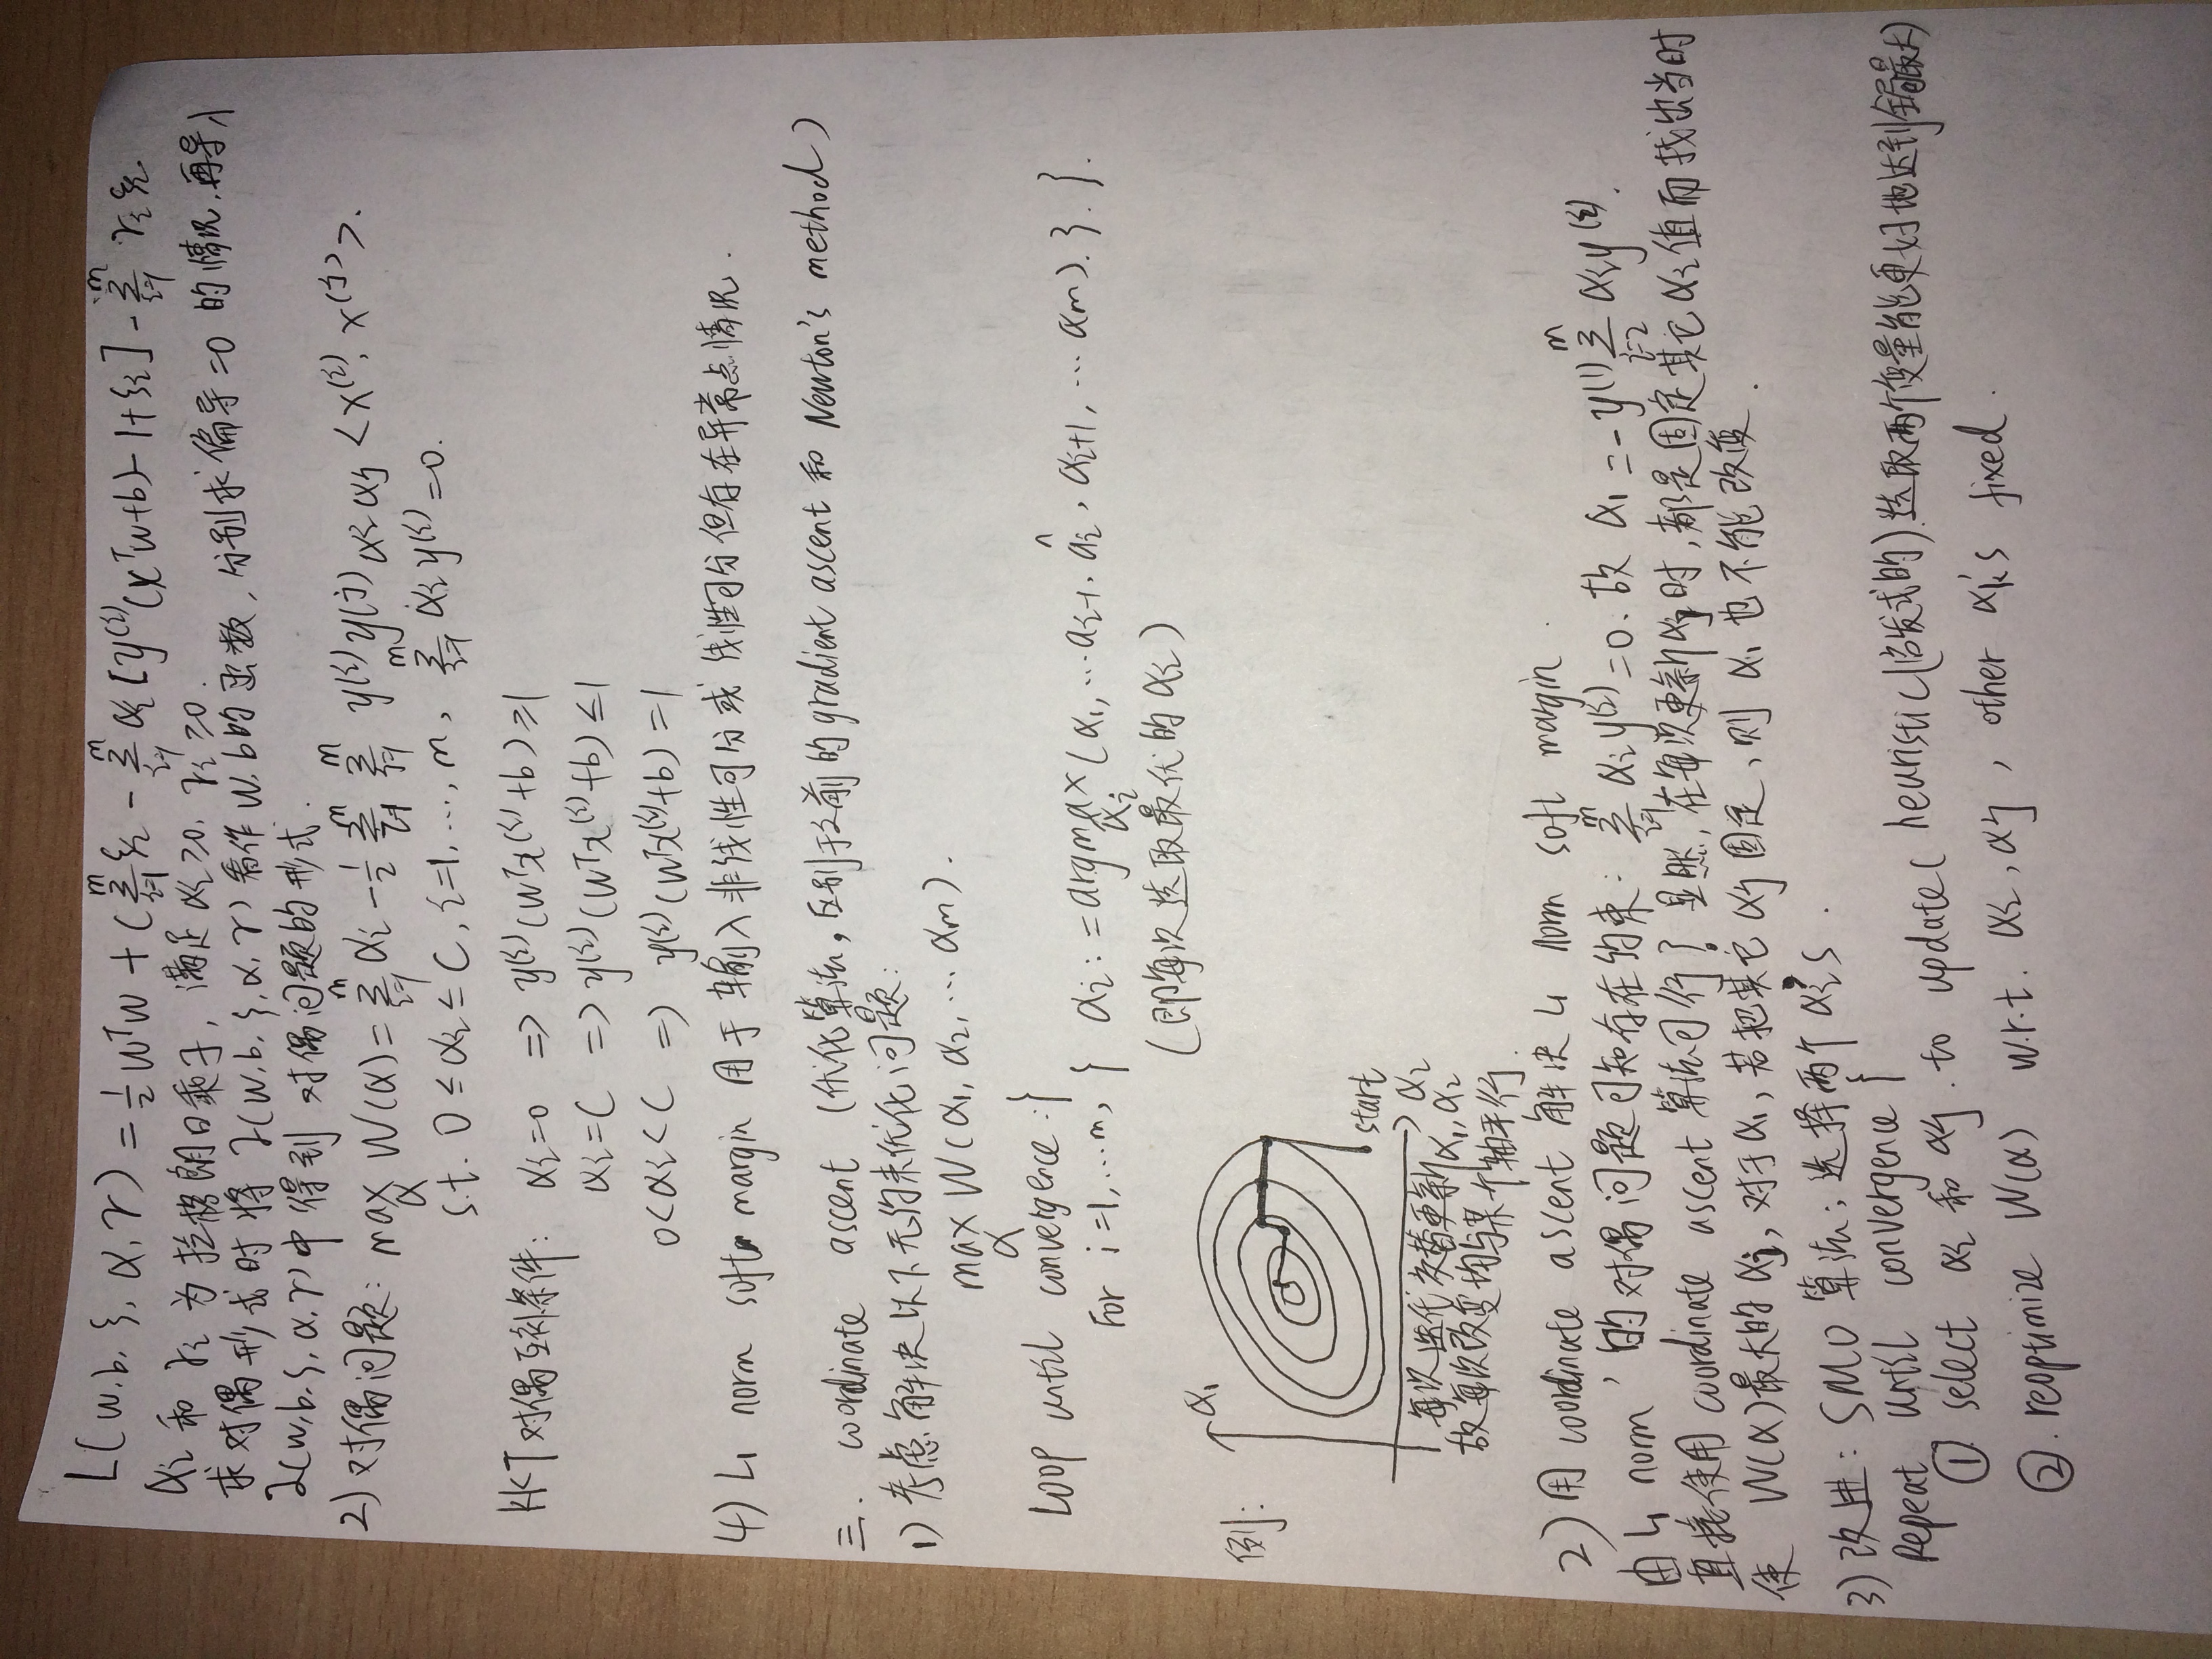 L(w,b,ξ,α,γ) = ½wᵀw + C∑ᵢ₌₁ᵐ ξᵢ - ∑ᵢ₌₁ᵐ αᵢ[y⁽ⁱ⁾(xᵀw+b)-1+ξᵢ] - ∑ᵢ₌₁ᵐ γᵢξᵢ.
αᵢ 和 γᵢ 为拉格朗日乘子, 满足 αᵢ≥0, γᵢ≥0.
求对偶形式时将 L(w,b,ξ,α,γ) 看作 w,b的函数, 分别求偏导=0 的情况, 再导入
L(w,b,ξ,α,γ)中得到 对偶问题的形式.
2) 对偶问题: max_α W(α) = ∑ᵢ₌₁ᵐ αᵢ - ½ ∑ᵢ₌₁ᵐ ∑ⱼ₌₁ᵐ y⁽ⁱ⁾y⁽ʲ⁾αᵢαⱼ <x⁽ⁱ⁾, x⁽ʲ⁾>.
s.t. 0 ≤ αᵢ ≤ C, i=1, ..., m, ∑ᵢ₌₁ᵐ αᵢy⁽ⁱ⁾=0.
KKT对偶互补条件: αᵢ=0 => y⁽ⁱ⁾(wᵀx⁽ⁱ⁾+b)≥1
αᵢ=C => y⁽ⁱ⁾(wᵀx⁽ⁱ⁾+b)≤1
0<αᵢ<C => y⁽ⁱ⁾(wᵀx⁽ⁱ⁾+b)=1
4) L₁ norm soft margin 用于输入非线性可分或 线性可分但存在异常点情况.
三. coordinate ascent (优化算法, 区别于之前的gradient ascent 和 Newton's method)
1) 考虑解决以下无约束优化问题:
max_α W(α₁, α₂, ... αm).
Loop until convergence: {
For i=1, ... m, { αᵢ := argmax_αᵢ (α₁, ... αᵢ₋₁, α̂ᵢ, αᵢ₊₁, ... αm). } }.
(即每次选取最优的 αᵢ)
例:
α₁
start
α₂
每次迭代交替更新α₁,α₂
故每次改变均与某个轴平行.
2) 用 coordinate ascent 解决 L₁ norm soft margin.
由 L₁ norm 的对偶问题可知存在约束: ∑ᵢ₌₁ᵐ αᵢy⁽ⁱ⁾=0. 故 α₁ = -y⁽¹⁾∑ᵢ₌₂ᵐ αᵢy⁽ⁱ⁾.
直接使用 coordinate ascent 算法可行? 显然, 在每次更新αⱼ时, 都是固定其它 αᵢ 值而找出当时
使 W(α)最大的 αⱼ, 对于α₁, 若把其它 αⱼ 固定, 则 α₁ 也不能改变.
3) 改进: SMO 算法; 选择两个 αᵢ's.
Repeat until convergence {
① select αᵢ 和 αⱼ. to update ( heuristic(启发式的). 选取两个变量能更好地达到全局最大)
②. reoptimize W(α) w.r.t. αᵢ, αⱼ, other αₖ's fixed.